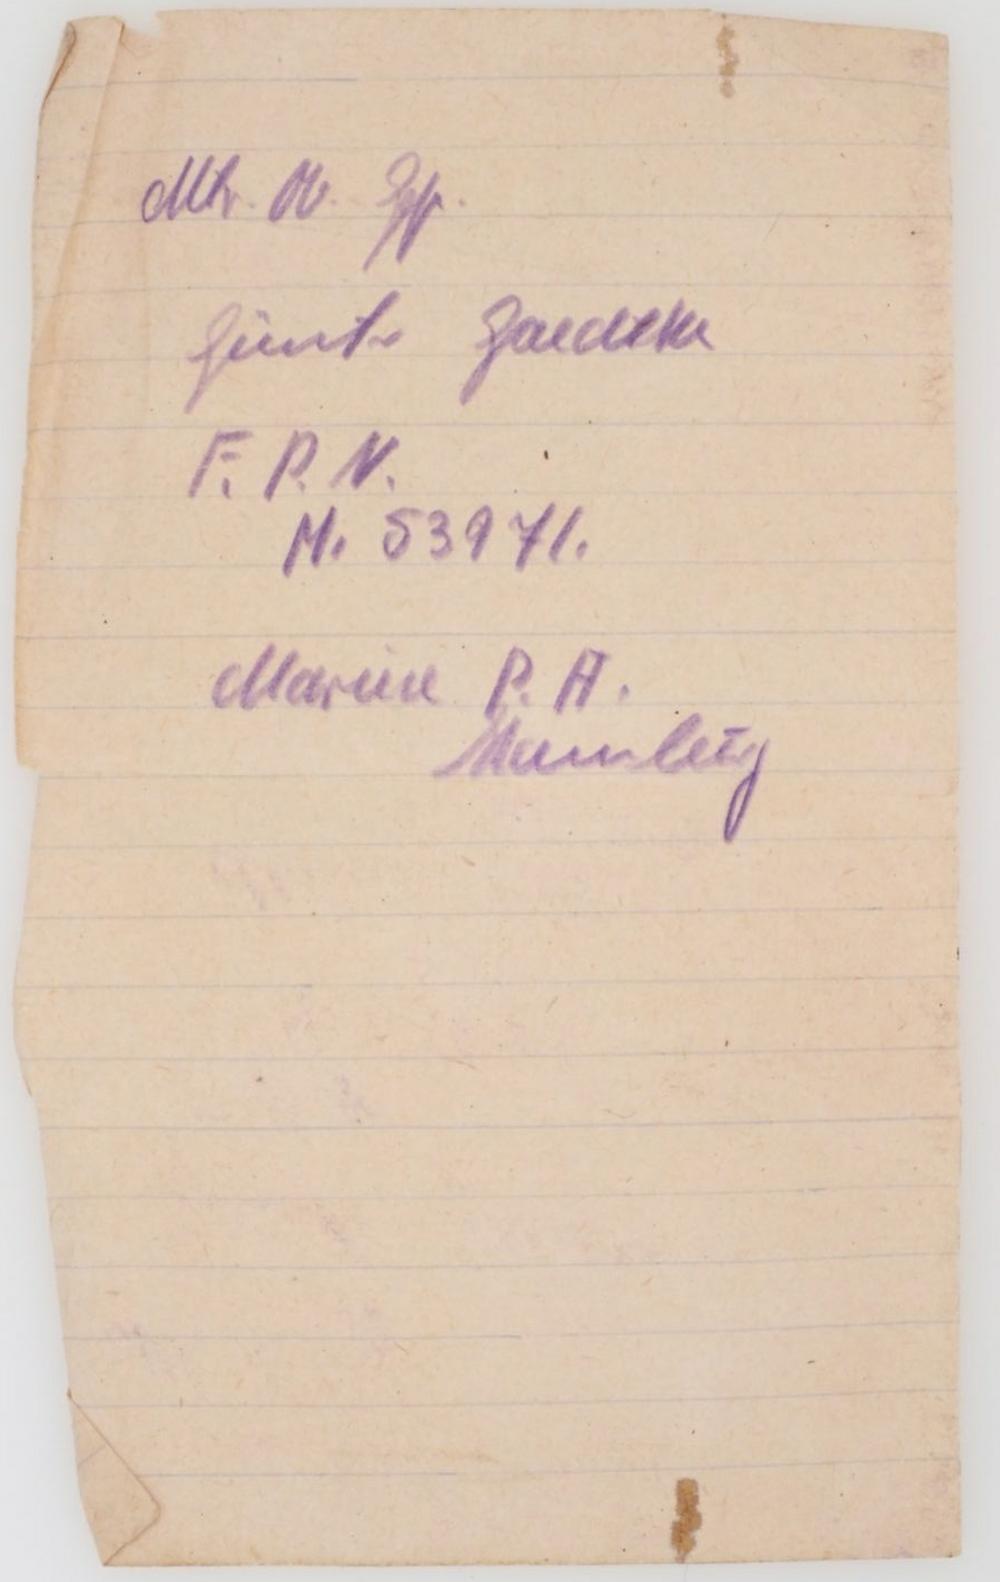 Mtr. Ob. Gfr.
Günter Gaedtke
F. P. N.
M. 53971.
Marine P. A.
Hamburg